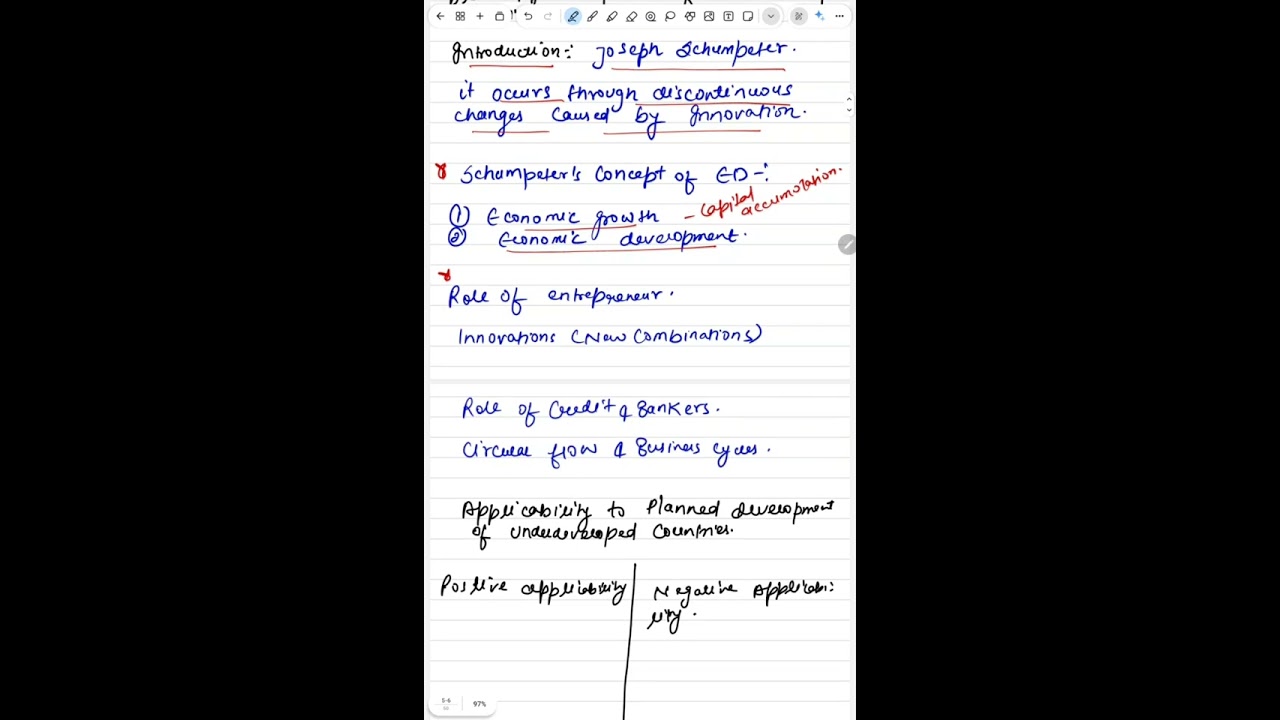 Introduction:- Joseph Schumpeter.
it occurs through discontinuous
changes caused by Innovation.
Schumpeter's Concept of ED-:
① Economic growth - capital accumulation.
② Economic development.
Role of entrepreneur.
Innovations (New Combinations)
Role of Credit & Bankers.
Circular flow & Business cycles.
Applicability to Planned development
of underdeveloped Countries.
Positive applicability
Negative Applicabi-
lity.
5-6
97%